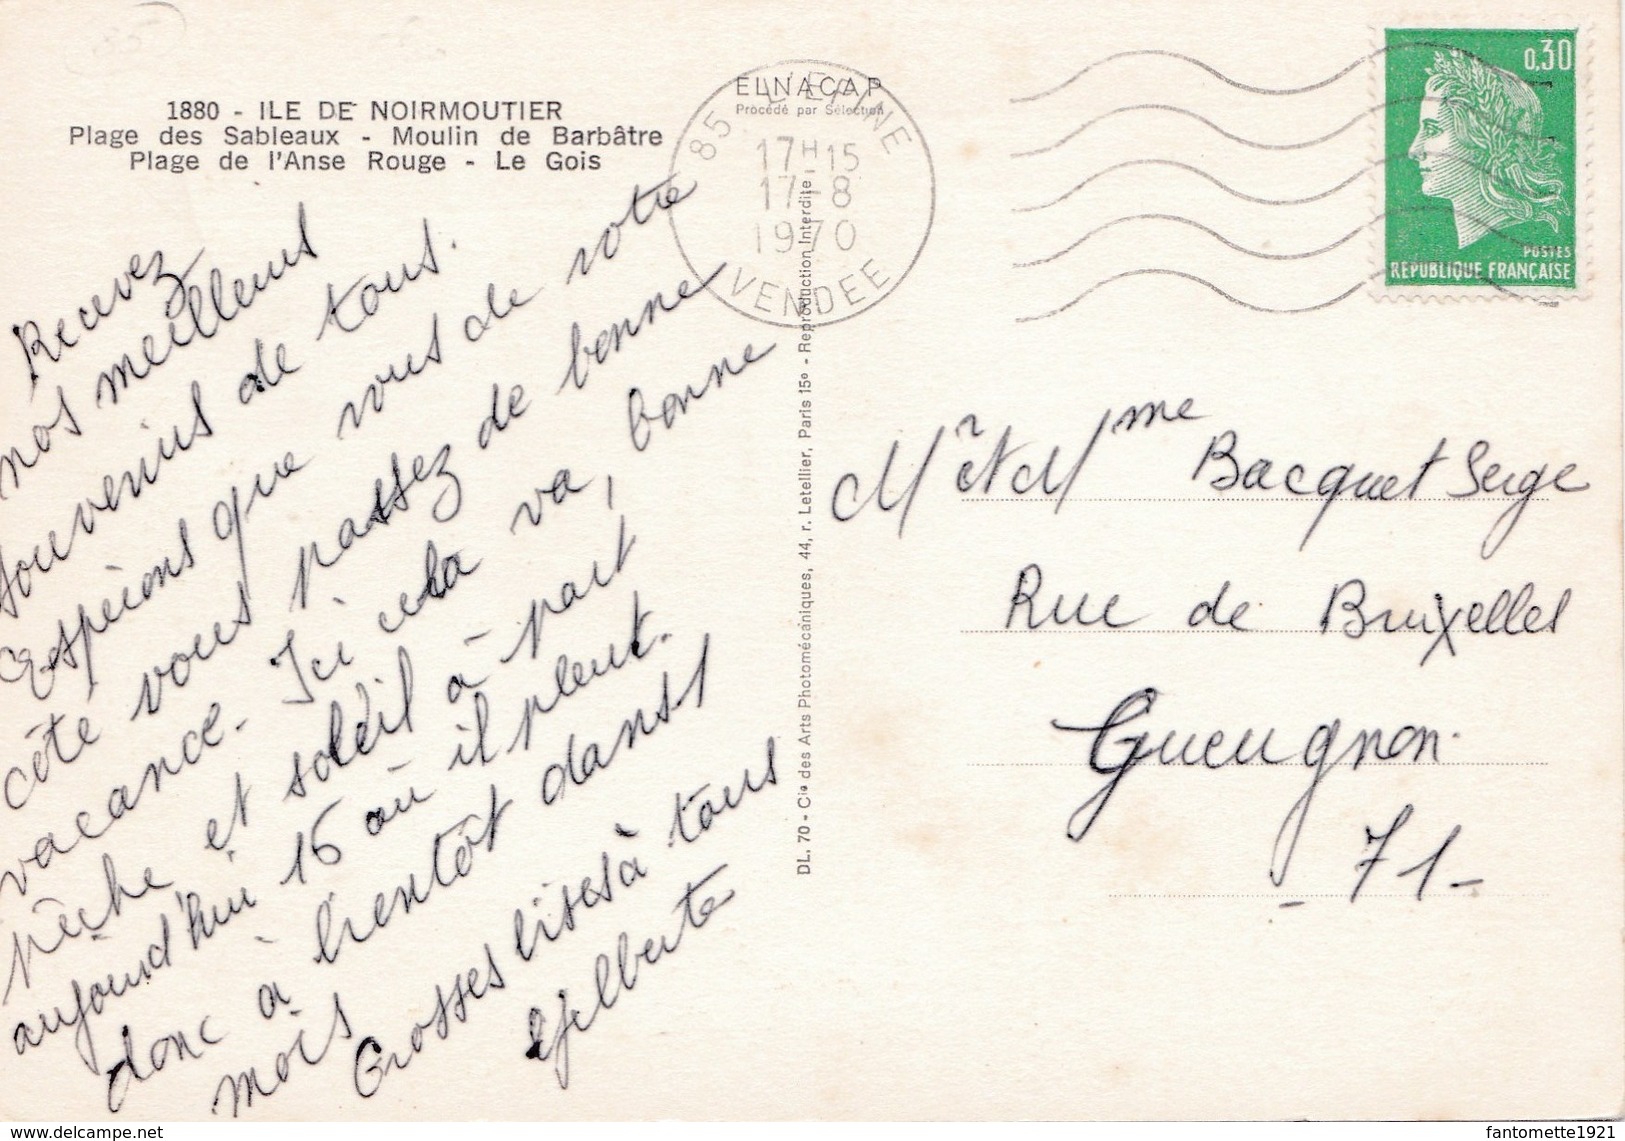 1880 - ILE DE NOIRMOUTIER
Plage des Sableaux - Moulin de Barbâtre
Plage de l'Anse Rouge - Le Gois
ELNACAP
Procédé par Sélection
85 L'EPINE
17H15
17-8
1970
VENDEE
0,30
POSTES
REPUBLIQUE FRANÇAISE
Recevez
nos meilleurs
souvenirs de tous.
Espérons que vous de votre
côté vous passez de bonne
vacance. Ici cela va, bonne
pêche et soleil à part
aujourd'hui 16 où il pleut.
donc à bientôt dans 1
mois
Grosses bises à tous
Gilberte
DL. 70 - Cie des Arts Photomécaniques, 44, r. Letellier, Paris 15e - Reproduction Interdite
Mr et Mme Bacquet Serge
Rue de Bruxelles
Gueugnon.
- 71 -
delcampe.net
fantomette1921